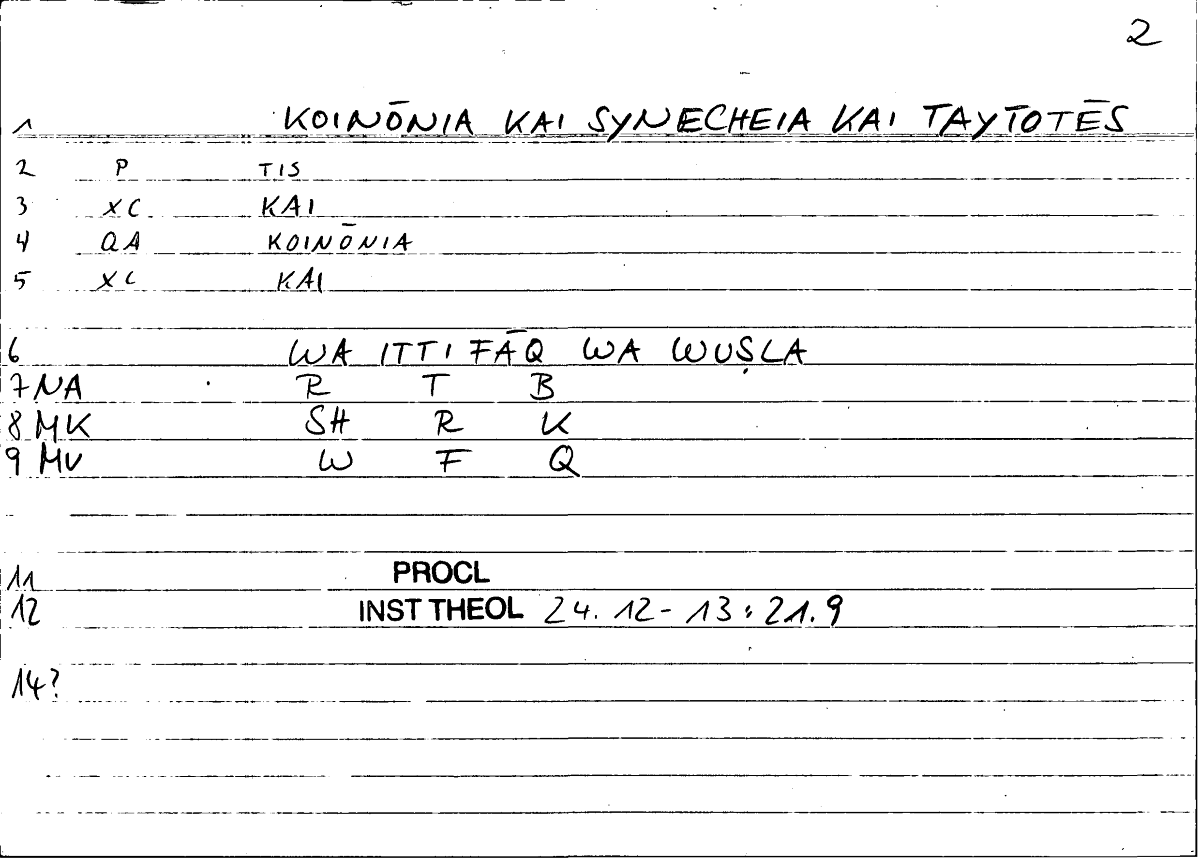 2
1 KOINŌNIA KAI SYNECHEIA KAI TAYTOTĒS
2 P TIS
3 XC KAI
4 QA KOINŌNIA
5 XC KAI
6 WA ITTIFĀQ WA WUṢLA
7 NA R T B
8 MK SH R K
9 MV W F Q
11 PROCL
12 INST THEOL 24.12-13:21.9
14?